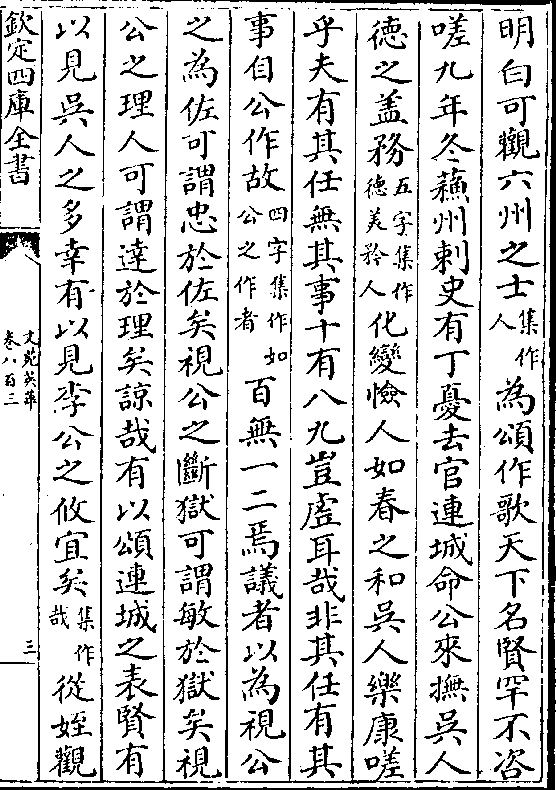 明白可觀六州之士集作人為頌作歌天下名賢罕不咨
嗟九年冬蘓州刺史有丁憂去官連城命公來撫吳人
徳之盖務五字集作徳美矜人化變憸人如春之和吳人樂康嗟
乎夫有其任無其事十有八九豈虗耳哉非其任有其
事自公作故四字集作如公之作者百無一二焉議者以為視公
之為佐可謂忠於佐矣視公之斷獄可謂敏於獄矣視
公之理人可謂達於理矣諒哉有以頌連城之表賢有
以見吳人之多幸有以見李公之攸宜矣集作哉從姪觀
欽定四庫全書
文苑英華
卷八百三
三